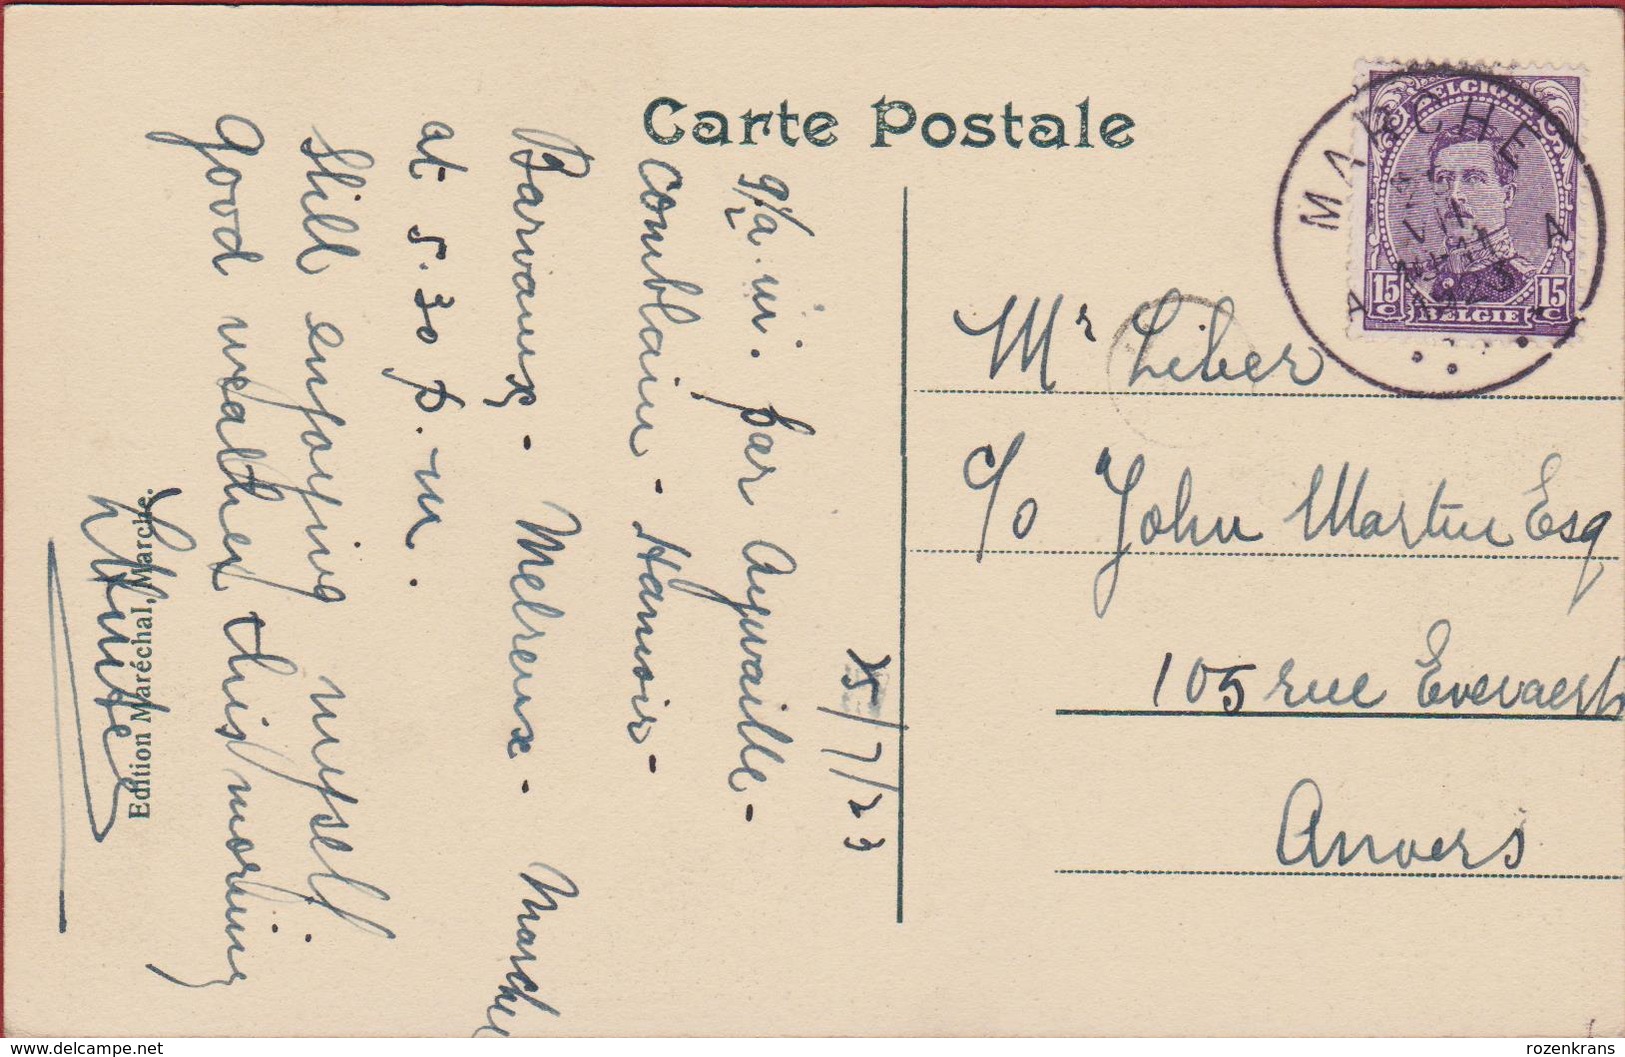 Carte Postale
25/7/23
9½ a.m. par Aywaille -
Comblain - Hamoir -
Barvaux - Melreux - Marche
at 5.30 p.m.
Still enjoying myself.
Good weather this morning
Edition Maréchal, Marche.
MARCHE
A A
BELGIQUE
15 C 15 C
BELGIE
Mr Liber
c/o John Martin Esq
105 rue Everaerts
Anvers
rozenkrans